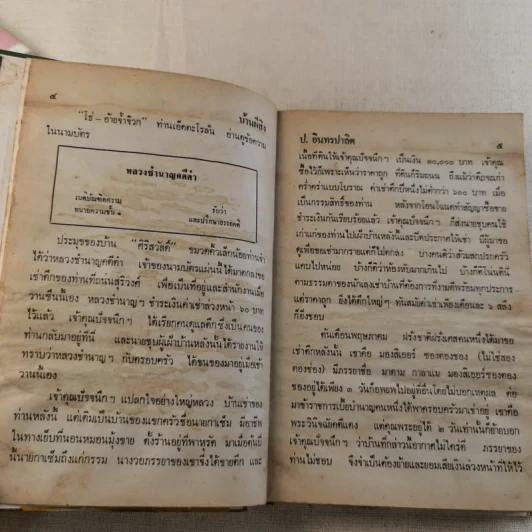 ๔
บ้านผีสิง
"โย่ – อ้ายจ้ำจิวก" ท่านเอ็ดตะโรลั่น อ่านดูข้อความ
ในนามบัตร
หลวงชำนาญคดีดำ
เนติบัณฑิตความ
ทนายความชั้น ๑
รับว่า
และปรึกษาอรรถคดี
ประมุขของบ้าน "ศิริสวัสดิ์" ขมวดคิ้วเล็กน้อยท่านจำ
ได้ว่าหลวงชำนาญคดีดำ เจ้าของนามบัตรแผ่นนี้ ได้มาตกลงขอ
เช่าตึกของท่านที่ถนนสุริวงศ์ เพื่อเปิดที่อยู่และสำนักงานเมื่อ
วานซืนนี้เอง หลวงชำนาญ ๆ ชำระเงินค่าเช่าล่วงหน้า ๖๐ บาท
ไว้แล้ว เจ้าคุณปัจจนึก ฯ ได้เรียกคนดูแลตึกซึ่งเป็นคนของ
ท่านกลับมาอยู่ที่นี่ และนายชุบผู้เฝ้าบ้านหลังนั้นได้รายงานให้
ทราบว่าหลวงชำนาญ ๆ กับครอบครัว ได้ขนของมาอยู่เมื่อเช้า
วานนี้เอง
เจ้าคุณปัจจนึก ฯ แปลกใจอย่างใหญ่หลวง บ้านเช่าของ
ท่านหลังนี้ แต่เดิมเป็นบ้านของแขกครัวชื่อนายกาเซ็ม มีอาชีพ
ในทางเย็บที่นอนหมอนมุ้งขาย ตั้งร้านอยู่ที่พาหุรัด มาเมื่อต้นปี
นี้นายกาเซ็มถึงแก่กรรม นางวอภรรยาของเขาจึงได้ขายตึก และ
ป. อินทรปาลิต
๕
เนื้อที่ดินให้เจ้าคุณปัจจนึก ฯ เป็นเงิน ๓๐,๐๐๐ บาท เจ้าคุณ
ซื้อไว้ก็เพราะเห็นว่าราคาถูก ที่ดินก็ริมถนน ถึงแม้ว่าตึกจะเก่า
คร่ำคร่าแบบโบราณ ค่าเช่าตึกปีหนึ่งไม่ต่ำกว่า ๖๐๐ บาท เมื่อ
เป็นกรรมสิทธิ์ของท่าน หลังจากโอนโฉนดทำสัญญาซื้อขาย
ชำระเงินกันเรียบร้อยแล้ว เจ้าคุณปัจจนึก ฯ ก็ส่งนายชุบคนใช้
เก่าแก่ของท่านไปเฝ้าบ้านหลังนั้นและปิดประกาศให้เช่า มีผู้มาขอ
ดูเพื่อขอเช่ามากรายแต่ก็ไม่ตกลง บางคนติว่าส้วมสกปรกครัว
แคบไปหน่อย บ้างก็ติว่าห้องหับมากเกินไป บ้างก็ติโน่นตินี่
ตามธรรมดาของนักเลงเช่าบ้านที่ต้องการทั้งงามดีพร้อมทุกประการ
แต่ราคาถูก ยิ่งได้ตึกใหญ่ๆ ทันสมัยค่าเช่าเพียงเดือนละ ๖ สลึง
ก็ยิ่งชอบ
ต้นเดือนพฤษภาคม ฝรั่งชาติฝรั่งเศสคนหนึ่งได้มาขอ
เช่าตึกหลังนั้น เขาคือ มองสิเออร์ ซองคอง (ไม่ใช่สอง
คองซอง) มีภรรยาชื่อ มาดาม กาลาแม มองสิเออร์ซองคอง
อยู่ได้เพียง ๓ วันก็อพยพไปอยู่ที่อื่นโดยไม่บอกเหตุผล ต่อ
มาข้าราชการเบี้ยบำนาญคนหนึ่งได้พาครอบครัวมาเช่าอยู่ เขาคือ
พระวินิจฉัยคดีแดง แต่คุณพระอยู่ได้ ๒ วันเท่านั้นก็ย้ายบอก
เจ้าคุณปัจจนึก ฯ ว่าบ้านที่กล่าวนี้อากาศไม่ใคร่ดี ภรรยาของ
ท่านไม่ชอบ จึงจำเป็นต้องย้ายและยอมเสียเงินล่วงหน้าที่ให้ไว้